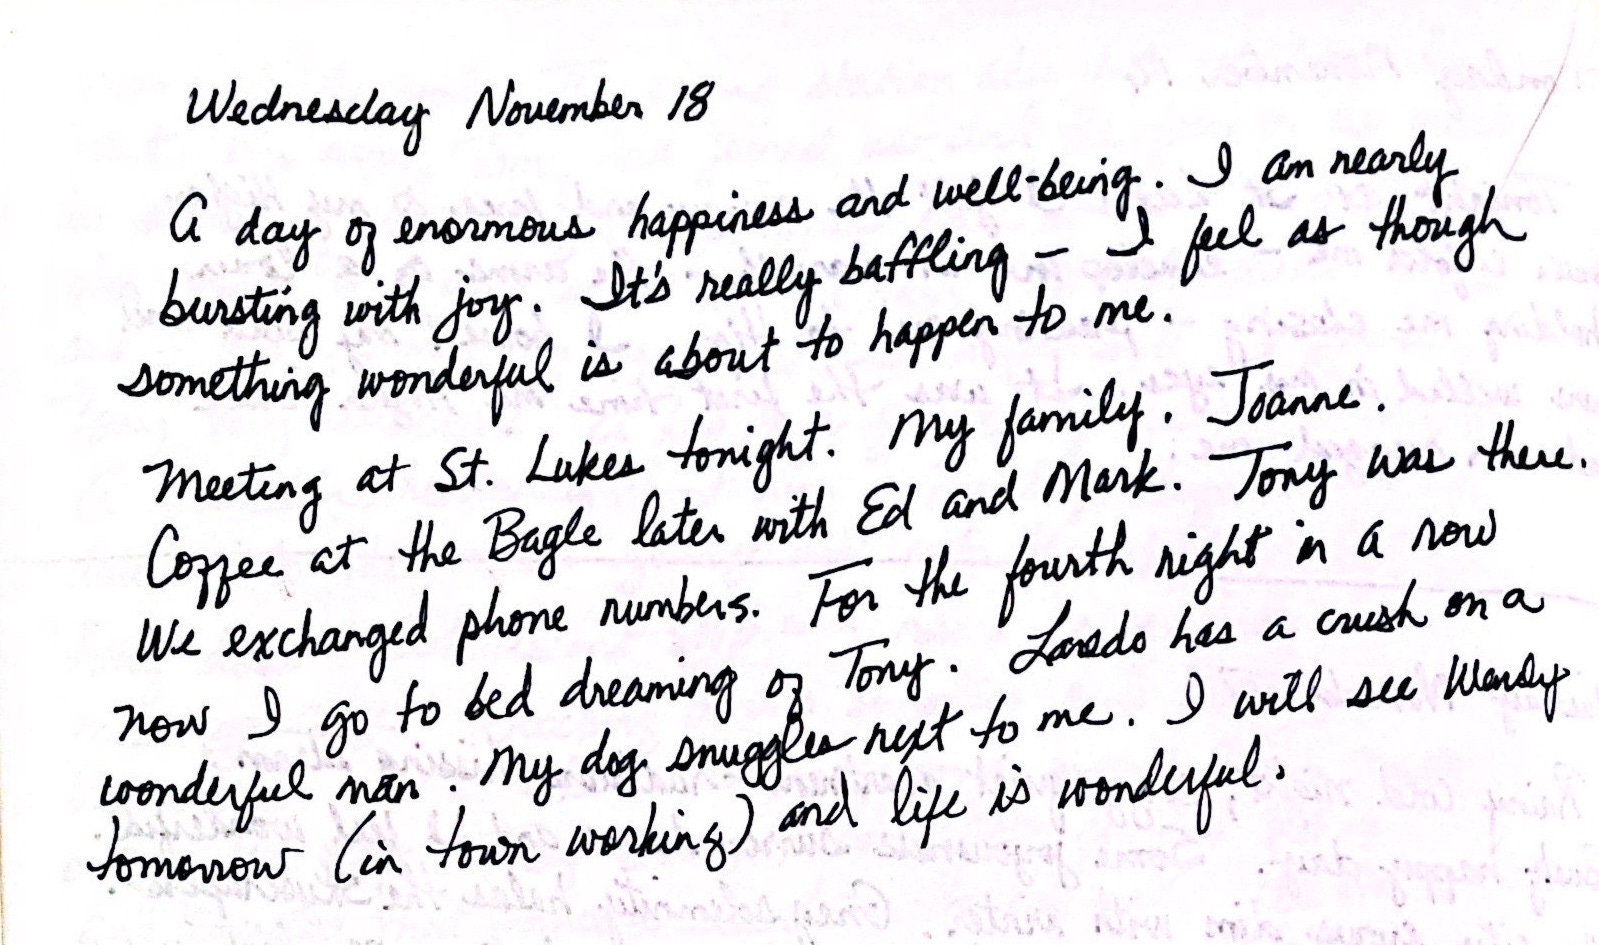 Wednesday November 18
A day of enormous happiness and well-being. I am nearly
bursting with joy. It's really baffling – I feel as though
something wonderful is about to happen to me.
Meeting at St. Lukes tonight. My family. Joanne.
Coffee at the Bagle later with Ed and Mark. Tony was there.
We exchanged phone numbers. For the fourth night in a row
now I go to bed dreaming of Tony. Laredo has a crush on a
wonderful man. My dog snuggles next to me. I will see Wendy
tomorrow (in town working) and life is wonderful.